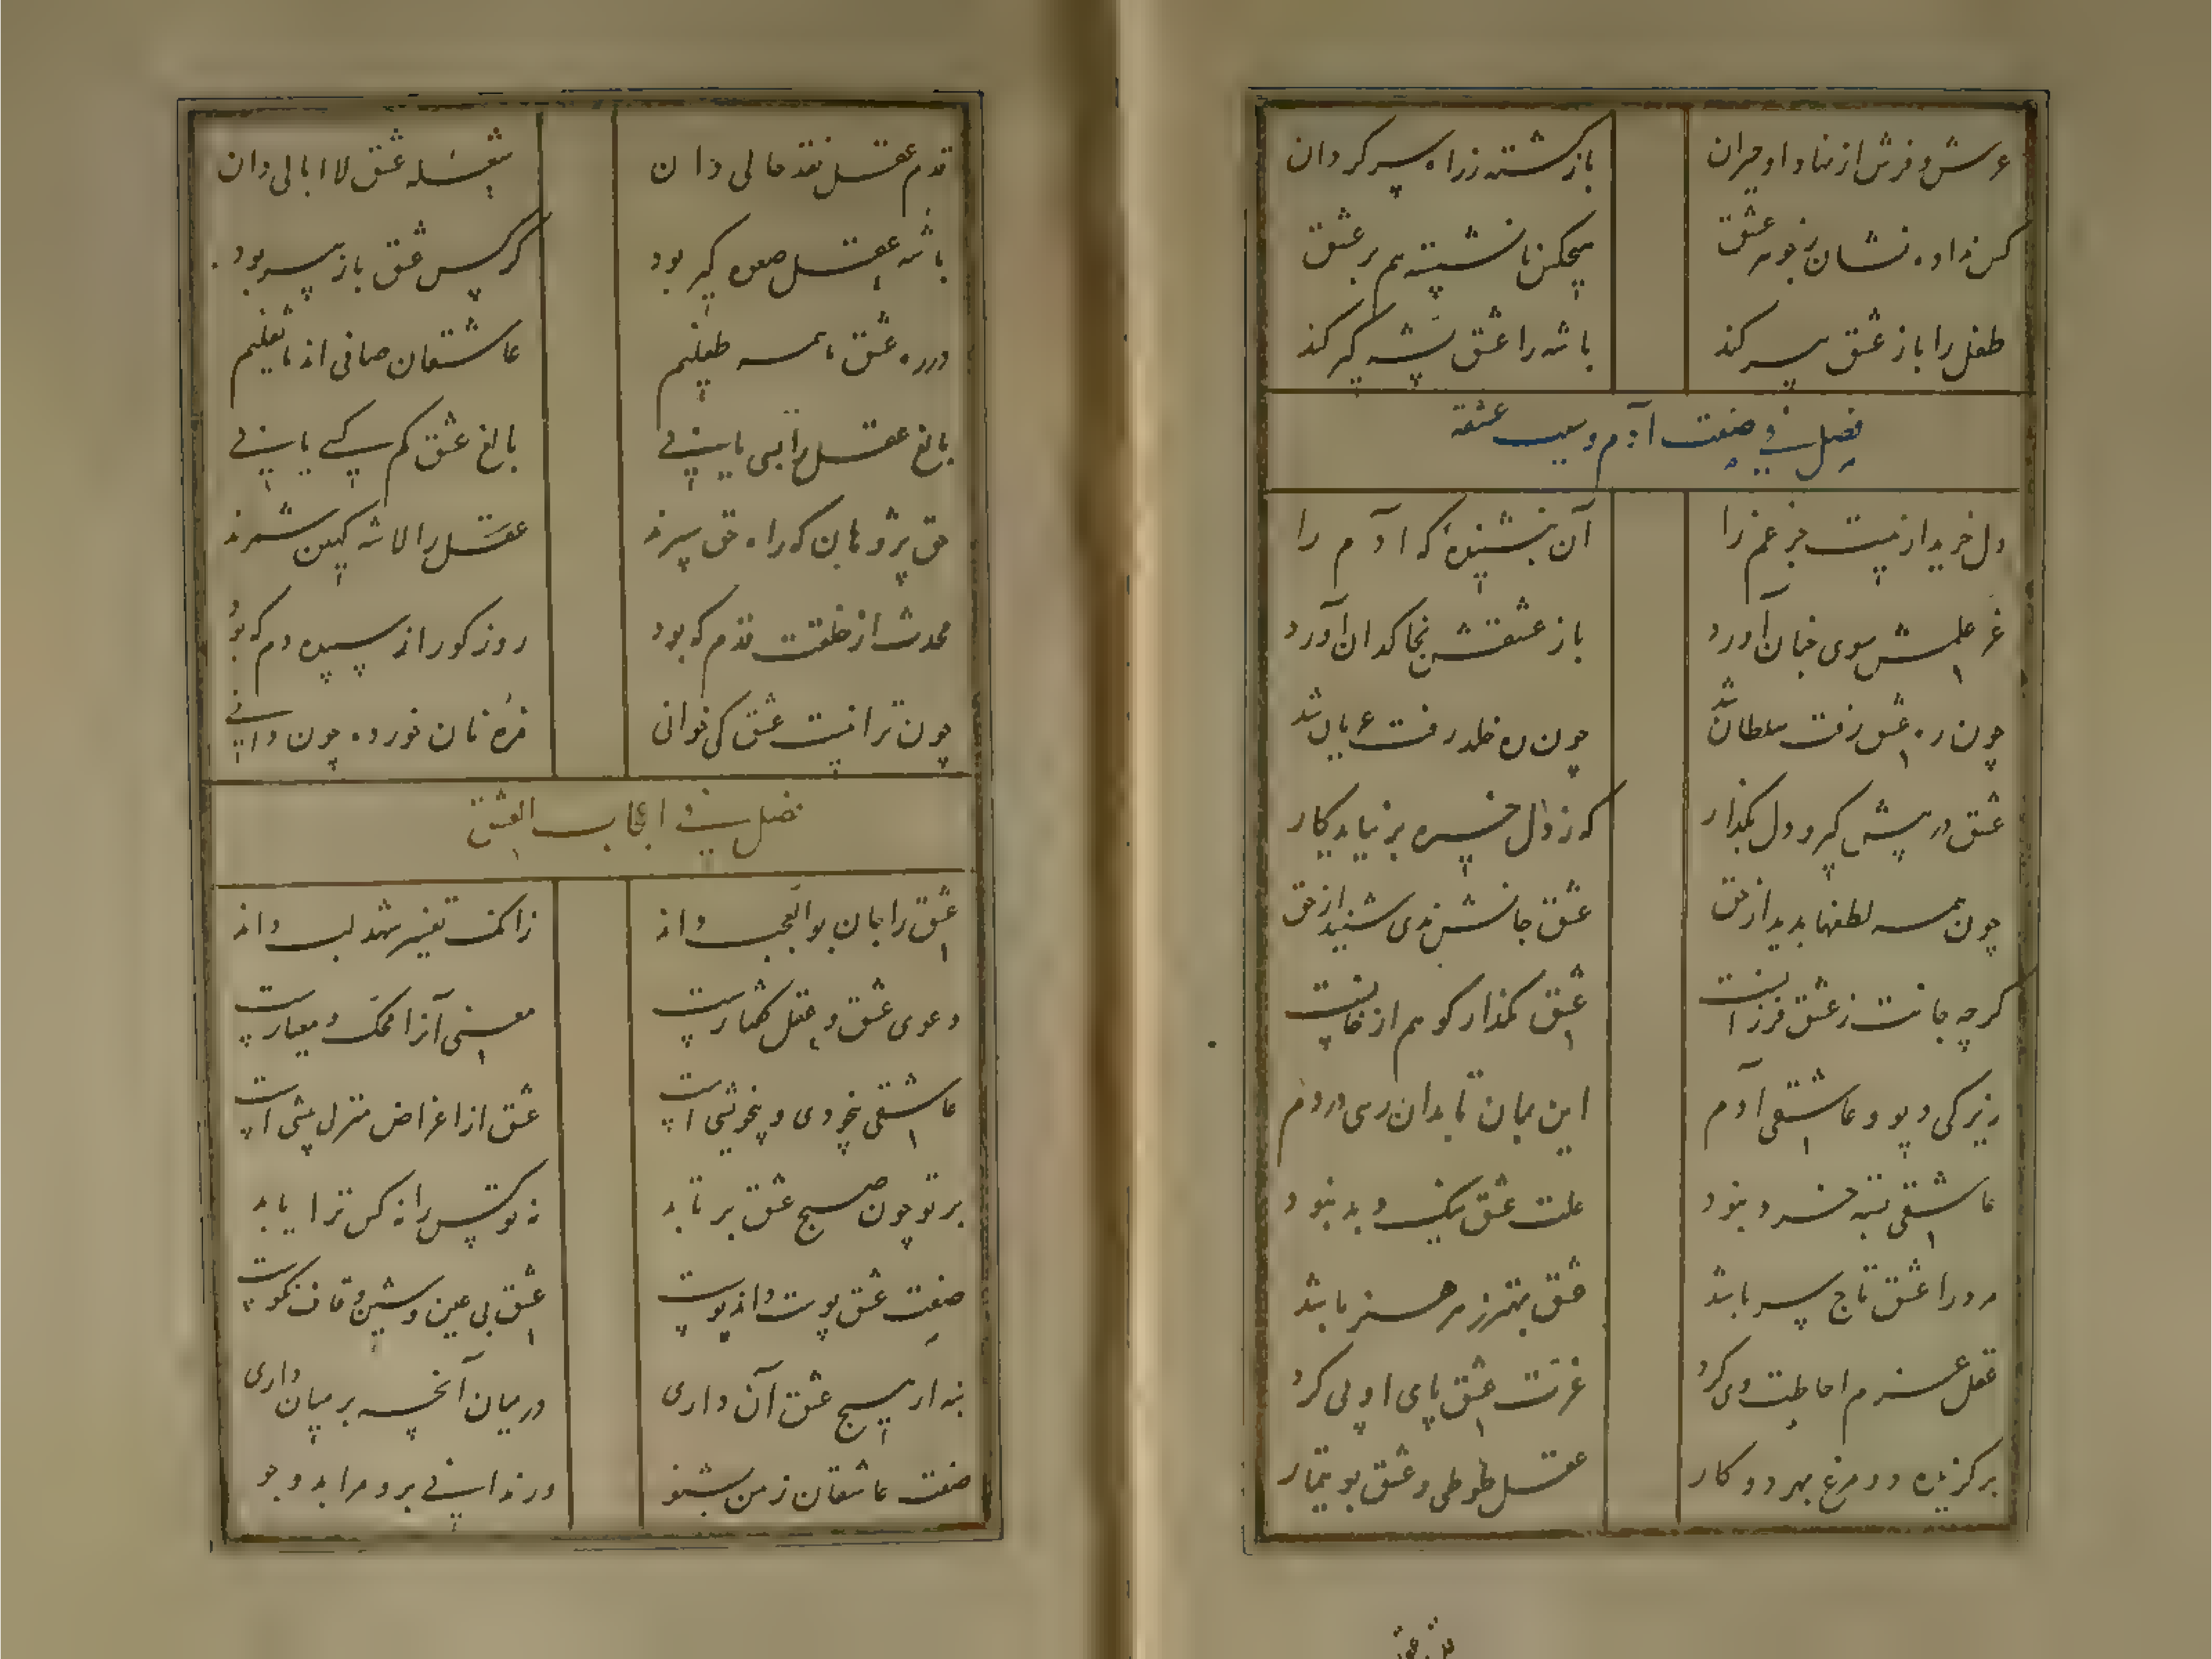 عرش و فرش از نهاد او حیران	باز گشته ز راه سرگردان
کس نداده نشان ز جوهر عشق	هیچکس نانشسته هم بر عشق
طفل را باز عشق پیر کند	باشه را عشق پشه گیر کند
فصل فی صفت آدم و سبب عشقه
دل خرید از نیست جز غم را	آن نشنیدهٔ که آدم را
عز علمش سوی جنان آورد	باز عشقش بخاکدان آورد
چون ره عشق رفت سلطان شد	چون ره خلد رفت عریان شد
عشق در پیش گیر و دل بگذار	که ز دل خیره بر نیاید کار
چون همه لطفها بدید از حق	عشق جانش ندی شنید از حق
گرچه جانت ز عشق فرزانست	عشق بگذار کو هم از خانست
زیرکی دیو و عاشقی آدم	این بمان تا بدان رسی در دم
عاشقی بسته خرد نبود	علت عشق نیک و بد نبود
مرد را عشق تاج سر باشد	عشق بهتر ز هر هنر باشد
عقل عزم احاطت وی کرد	غیرت عشق پای او پی کرد
برگزیده دو مرغ بهر دو کار	عقل طوطی و عشق بوتیمار
قدم عقل نقد حالی دان	شعله عشق لا ابالی دان
باشه عقل صعوه گیر بود	کرکس عشق باز پیر بود
در ره عشق ما همه طفلیم	عاشقان صافی اند ما ثفلیم
بالغ عقل را بسی یابی	بالغ عشق کم کسی یابی
حق پژوهان که راه حق سپرند	عقل را لاشه کهین شمرند
محدث از خلقت قدم که بود	روز کور از سپیده دم که بود
چون ترا نیست عشق کی خوانی	مزه نان خورده چون دانی
فصل فی اعجاب العشق
عشق را جان بوالعجب داند	زانکه تفسیر شهد لب داند
دعوی عشق و عقل گفتارست	معنی آنرا محک و معیارست
عاشقی بیخودی و بیخویشی است	عشق از اعراض منزل پیشی است
بر تو چون صبح عشق بر تابد	نه تو کس را نه کس ترا یابد
صفت عشق پوست داند پوست	عشق بی عین و شین و قاف نکوست
بنه ار هیچ عشق آن داری	در میان آنچه بر میان داری
صفت عاشقان ز من بشنو	ور ندانی برو مرا بد و جو